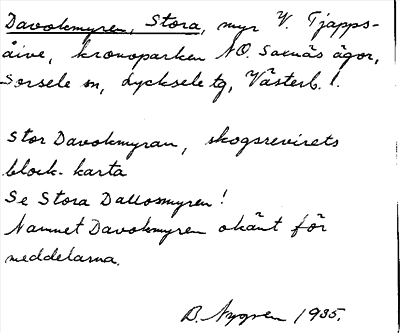 Davokmyren, Stora, myr V. Tjapps-
åive, kronoparken NO. Saxnäs ägor,
Sorsele sn, Lycksele tg, Västerb. l.
Stor Davokmyran, skogsrevirets
block-karta
Se Stora Dallosmyren!
Namnet Davokmyren okänt för
meddelarna.
B. Nygren 1935.